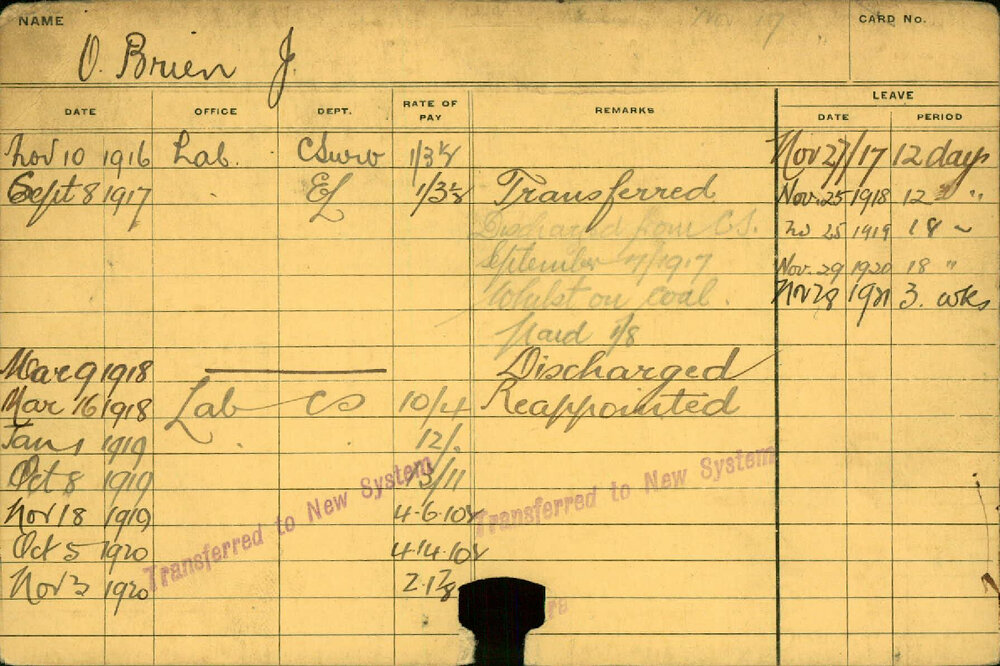 NAME
CARD No.
O. Brien J.
LEAVE
DATE OFFICE DEPT. RATE OF PAY REMARKS DATE PERIOD
Nov 10 1916 Lab. 1/3 Nov 27/17 12 days
Sept 8 1917 . EL 1/3⅛ Transferred Nov. 25 1918 12 " "
Discharged from C.S. No 25 1919 18 ~
September 7/1917 Nov. 29 1920 18 "
Whilst on coal. Nov 28 1921 3. wks
Paid 1/8
Mar 9 1918 Discharged
Mar 16 1918 Lab CS 10/4 Reappointed
Jan 1 1919 . . 12/.
Oct 8 1919 13/11
Nov 18 1919
Oct 5 1920
Nov 2 1920 2.1⅞
Transferred to New System
Transferred to New System